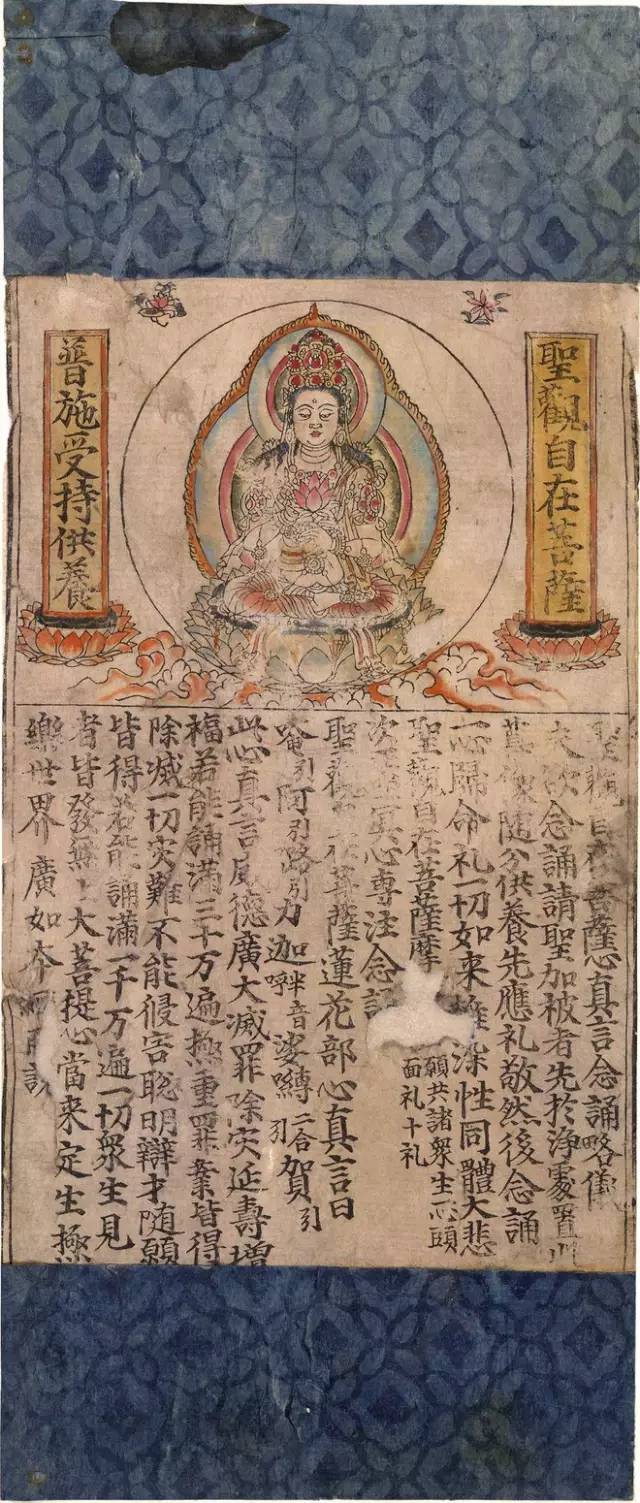 聖觀自在菩薩
普施受持供養
聖觀自在菩薩心真言念誦略儀
夫欲念誦請聖加被者先於淨處置此
尊像隨分供養先應礼敬然後念誦
一心歸命礼一切如来離染性同體大悲
聖觀自在菩薩摩
願共諸衆生一心頭
面礼十礼
次 心專注念誦
聖觀自在菩薩蓮花部心真言曰
唵引阿引路引力迦半音呼娑嚩二合引賀引
此心真言威德廣大滅罪除灾延壽增
福若能誦滿三十万遍極重罪業皆得
除滅一切灾難不能侵害聡明辯才随願
皆得若能誦滿一千万遍一切衆生見
者皆發無上大菩提心當来定生極
樂世界廣如本 所說